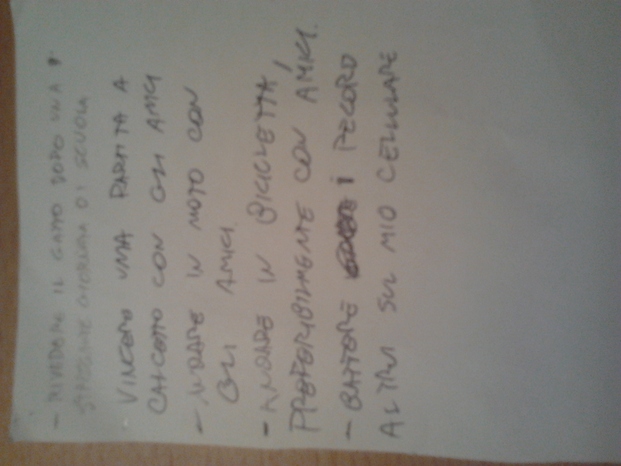 - RIVEDERE IL GATTO DOPO UNA
GIORNATA DI SCUOLA
VINCERE UNA PARTITA A
CALCETTO CON GLI AMICI
- ANDARE IN MOTO CON
GLI AMICI.
- ANDARE IN BICICLETTA,
PREFERIBILMENTE CON AMICI.
- BATTERE I RECORD
ALTRUI SUL MIO CELLULARE